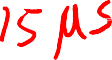 15 μs